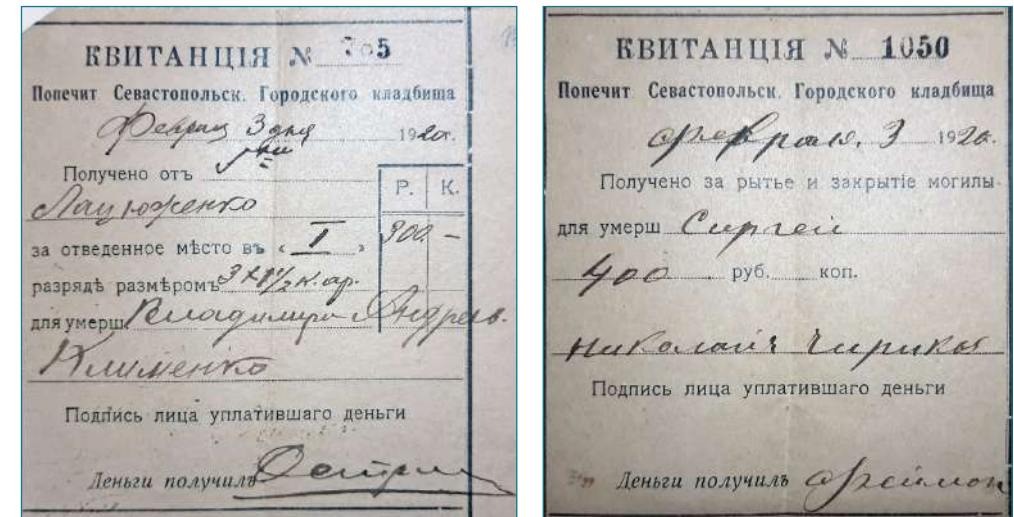 КВИТАНЦІЯ № 705
Попечит. Севастопольск. Городского кладбища
Февраля 3 дня 1920г.
Получено отъ
Р. К.
Лацюженко
за отведенное мѣсто въ « I » 300 —
разрядѣ размѣромъ 3х1½ к. ар.
для умерш Владимира Андреев.
Клименко
Подпись лица уплатившаго деньги
Деньги получилъ
КВИТАНЦІЯ № 1050
Попечит. Севастопольск. Городского кладбища
февраля. 3 1920г.
Получено за рытье и закрытіе могилы
для умерш Сергей
400 руб. коп.
Николай Чирик
Подпись лица уплатившаго деньги
Деньги получилъ